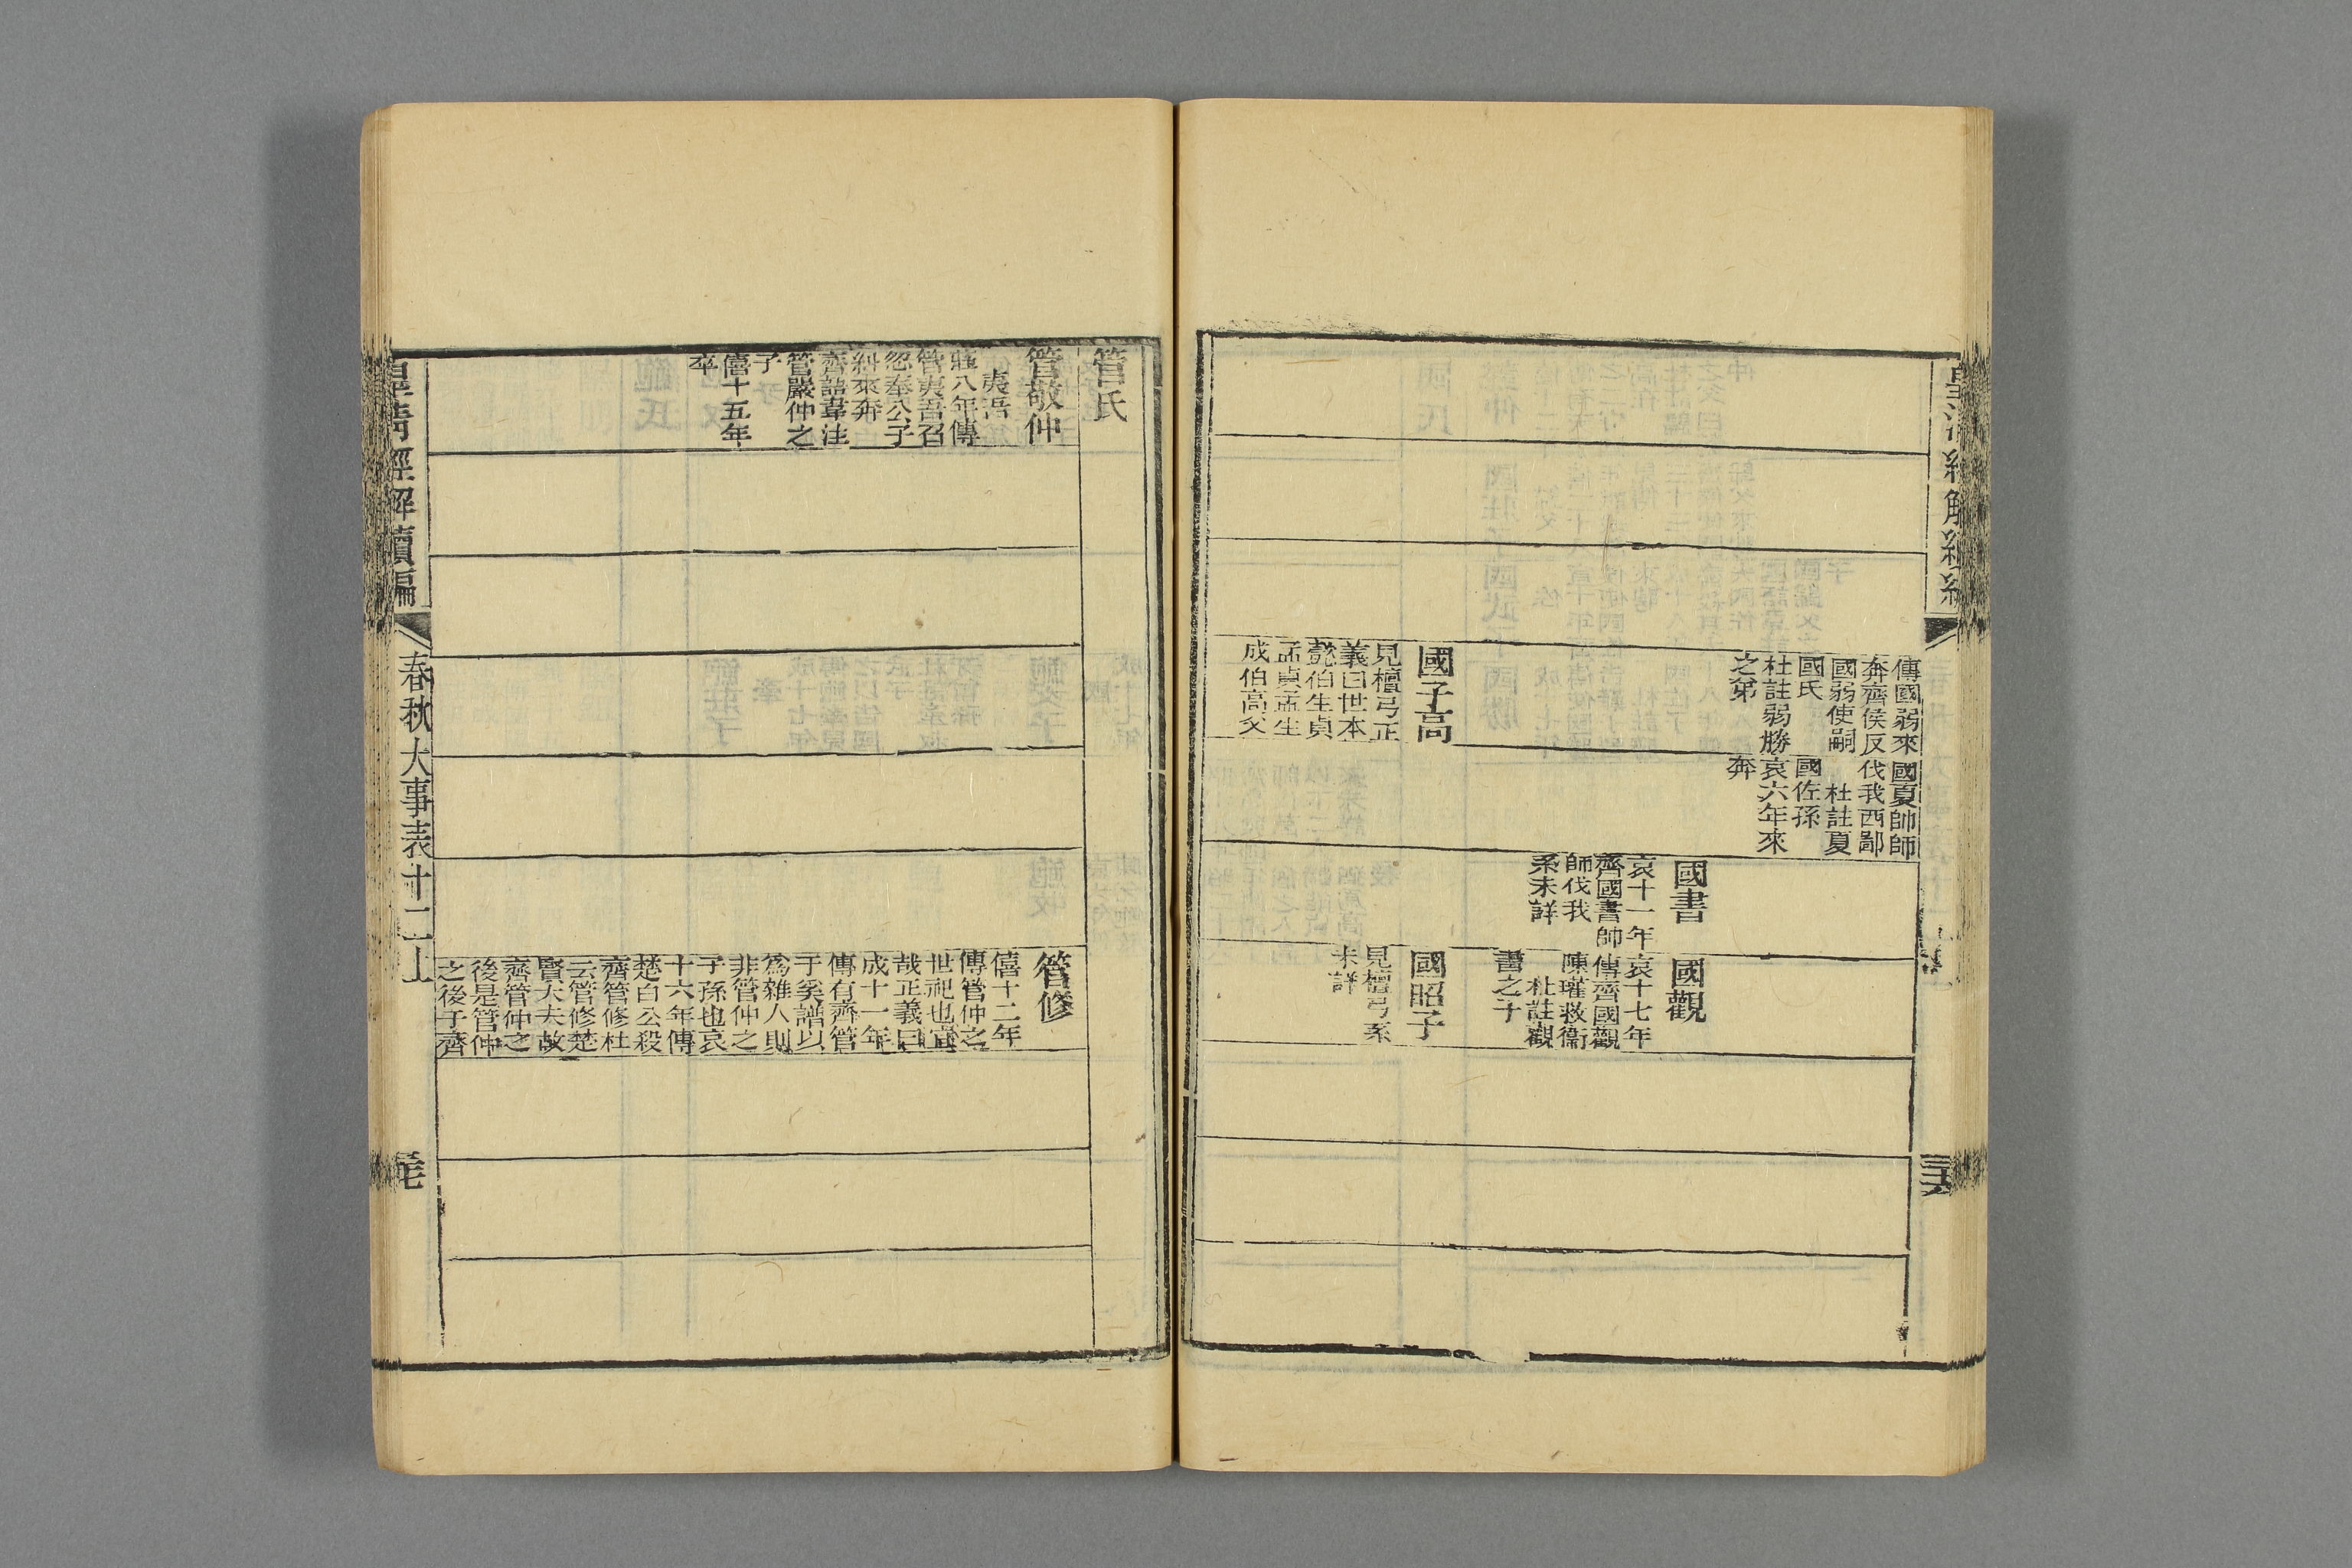 傳國弱來
奔齊侯反
國弱使嗣
國氏
杜註弱勝
之弟
國夏帥師
伐我西鄙
杜註夏
國佐孫
哀六年來
奔
國書
哀十一年
齊國書帥
師伐我
系未詳
國觀
哀十七年
傳齊國觀
陳瓘救衞
杜註觀
書之子
國子高
見檀弓正
義曰世本
懿伯生貞
孟貞孟生
成伯高父
國昭子
見檀弓系
未詳
管氏
管敬仲
夷吾
莊八年傳
管夷吾召
忽奉公子
糾來奔
齊語韋注
管嚴仲之
子
僖十五年
卒
管修
僖十二年
傳管仲之
世祀也宜
哉正義曰
成十一年
傳有齊管
于奚譜以
爲雜人則
非管仲之
子孫也哀
十六年傳
楚白公殺
齊管修杜
云管修楚
賢大夫故
齊管仲之
後是管仲
之後于齊
皇淸經解續編
春秋大事表十二上